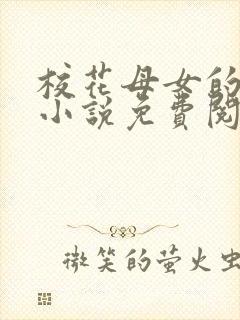 校花母女的
小説免費閱
微笑的萤火虫